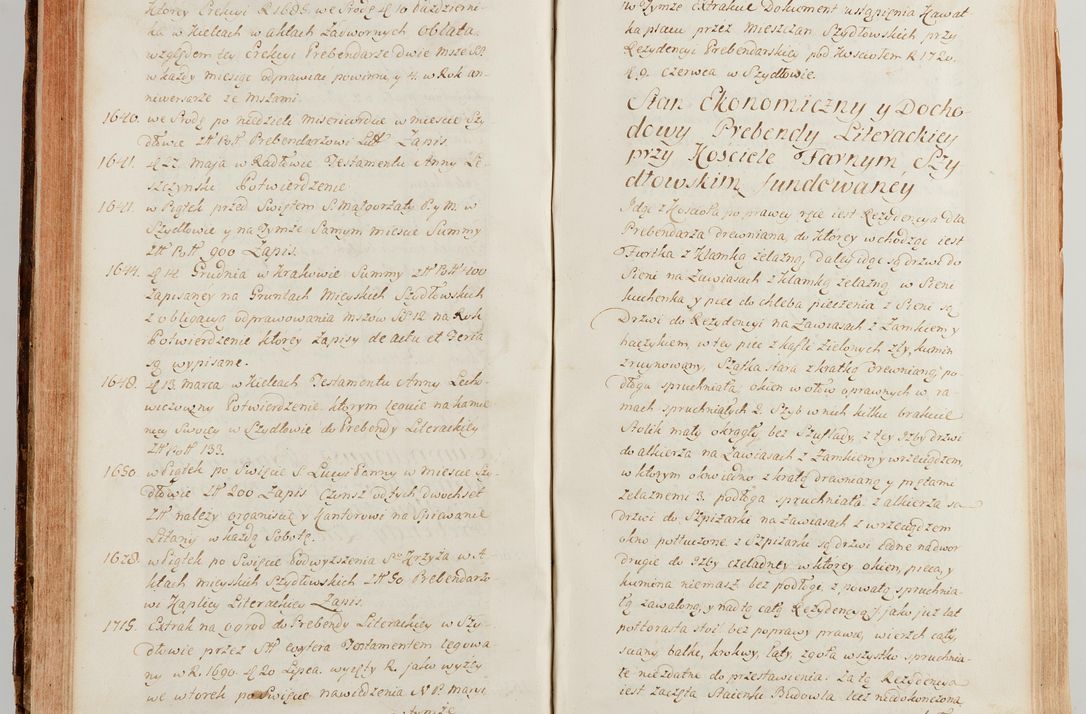 ktorey Erekcyi R 1685. we Srodę d 10 Pazdzierni-
ka w Kielcach w aktach Zadwornych Oblata.
względem tey Erekcyi Prebendarze Dwie Msze SS.
w kazdy miesiąc odprawiac powinni, y 4. w Rok an-
niwersarze ze Mszami.
1640. we Srodę po niedzieli misericordiæ w miescie Szy-
dłowie Prebendarzowi Zapis
1641. d 27. Maja w Radłowie Testamentu Anny Le-
szczynski Potwierdzenie
1641. w Piątek przed Swiętem S. Małgorzaty P. y M. w
Szydłowie y na tymze Samym miescie Summy
900 Zapis.
1644. d 14 Grudnia w Krakowie Summy 400
Zapisaney na Gruntach Mieyskich Szydłowskich
z obligacyą odprawowania Mszow SS. 12 na Rok
Potwierdzenie ktorey Zapisy de actu et Feria
są wypisane.
1648. d 13. marca w Kielcach Testamentu Anny Lecho-
wiczowny Potwierdzenie ktorym leguie na kamie
nicy Swoiey w Szydłowie do Prebendy Literackiey
133.
1650. w Piątek po Swięcie S. Lucyi Panny w miescie Szy-
dłowie 200 Zapis Czynsz od tych dwochset
nalezy organiscie y Kantorowi na Spiewanie
Litany w kazdą Sobotę.
1628. w Piątek po Swięcie Podwyzszenia S. Krzyza w A-
ktach mieyskich Szydłowskich 50 Prebendarzo-
wi Kaplicy Literackiey Zapis.
1715. Extrakt na ogrod do Prebendy Literackiey w Szy-
dłowie przez Testamentem legowa-
ny w R. 1690. d 20 Lipca. wyięty R. jako wyzey
we wtorek po Swięcie nawiedzenia N P. Maryi
w tymze
w tymze Extrakcie Dokument ustąpienia Kawał-
ka placu przez Mieszczan Szydłowskich przy
Rezydencyi Prebendarskiey pod Kosciołem R 1720.
d 9. Czerwca w Szydłowie.
Stan Ekonomiczny y Docho-
dowy Prebendy Literackiey
przy Kosciele Farnym, Szy
dłowskim fundowaney
Idąc z Koscioła po prawey ręce iest Rezydencya dla
Prebendarza drewniana, do ktorey wchodząc iest
Furtka z Klamką zelazną, daley idąc są drzwi do
Sieni na Zawiasach z Klamką zelazną, w Sieni
kuchenka, y piec do chleba pieczenia z Sieni są
Drzwi do Rezydencyi na Zawiasach z Zamkiem, y
haczykiem, w tey piec z kafli zielonych zły, kumin
zruynowany, Szafka stara z kratką drewnianą, po-
dłoga spruchniała, okien w ołow oprawnych w ra-
mach spruchniałych 2. Szyb w nich kilku brakuie
Stolik mały okrągły bez Szuflady, z tey Izby drzwi
do alkierza na Zawiasach z Zamkiem y wrzeciądzem,
w ktorym okno iedno z kratą drewnianą y prętami
zelaznemi 3. podłoga spruchniała z alkierza są
drzwi do Szpizarki na Zawiasach z wrzeciądzem
okno potłuczone, z Szpizarki są drzwi iedne nadwor
drugie do Izby czeladney w ktorey okien, pieca, y
kumina niemasz bez podłogi, z powałą spruchnia-
łą zawaloną, y nad tą całą Rezydencyą, jako juz lat
połtorasta stoi bez poprawy prawie, wierzch cały,
sciany balki, krokwy, łaty, zgoła wszystko spruchnia-
łe niezdatne do przestawienia. Za tą Rezydencyą
iest zaczęta Staienki Budowla lecz niedokończona